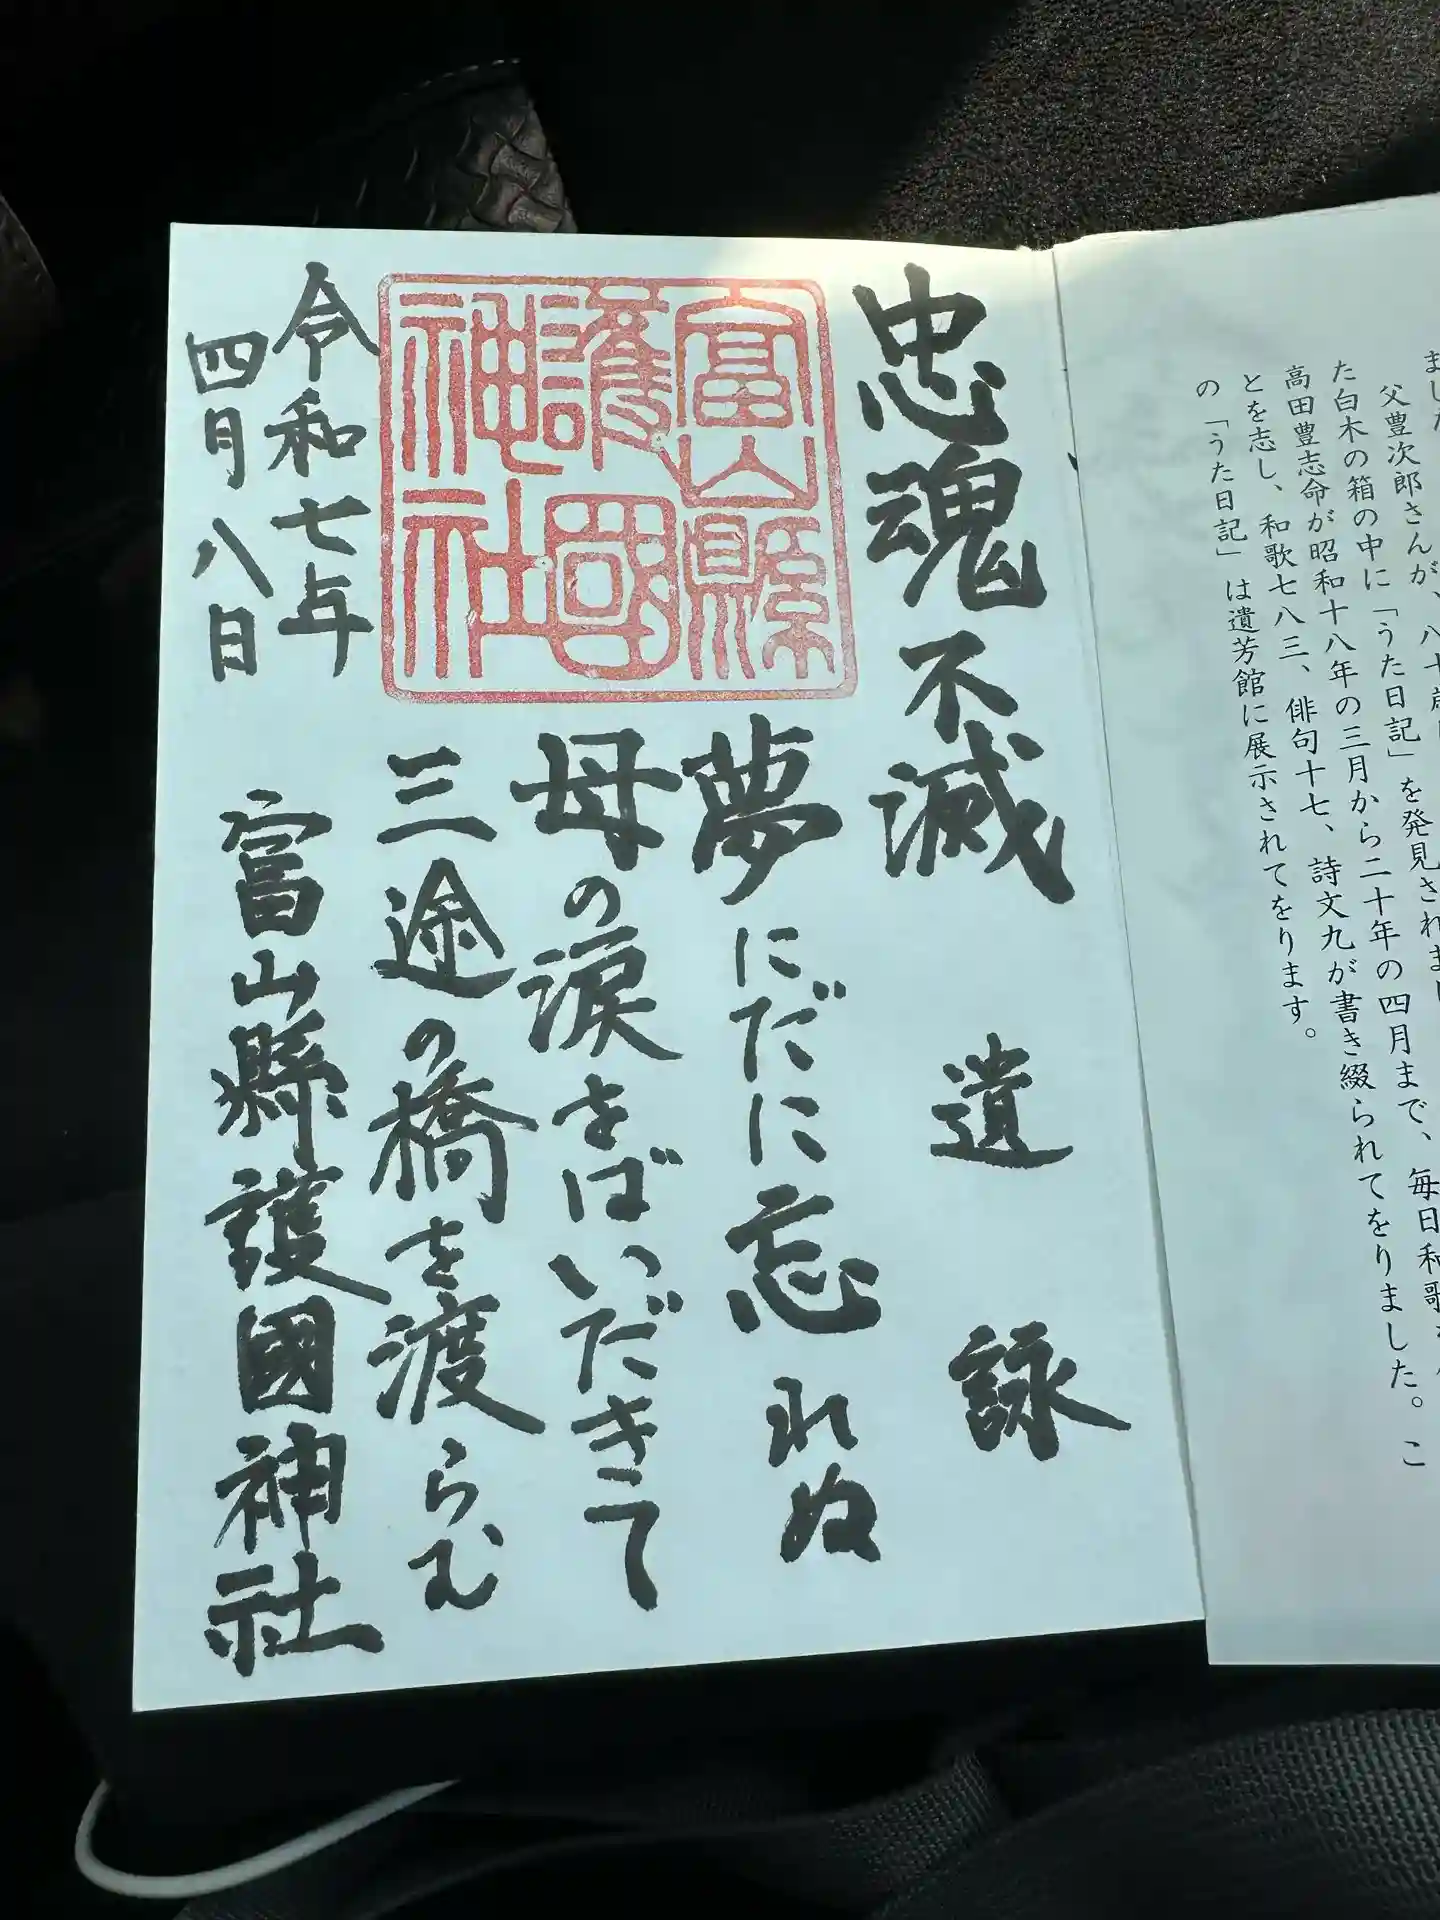 ました
父豊次郎さんが、八十歳
た白木の箱の中に「うた日記」を発見されまし
高田豊志命が昭和十八年の三月から二十年の四月まで、毎日和歌
とを志し、和歌七八三、俳句十七、詩文九が書き綴られてをりました。こ
の「うた日記」は遺芳館に展示されてをります。
忠魂不滅 遺詠
富山縣
護國
神社
夢にだに忘れぬ
母の涙をばいだきて
三途の橋を渡らむ
令和七年
四月八日
富山縣護國神社